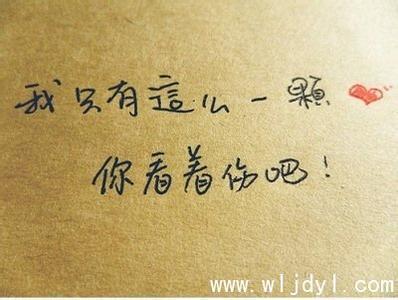 我只有這么一顆❤
你看着伤吧!
www.wljdyl.com